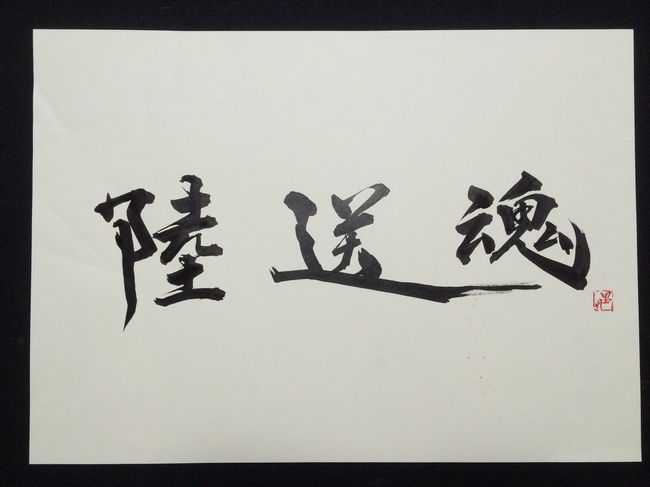 陸送魂